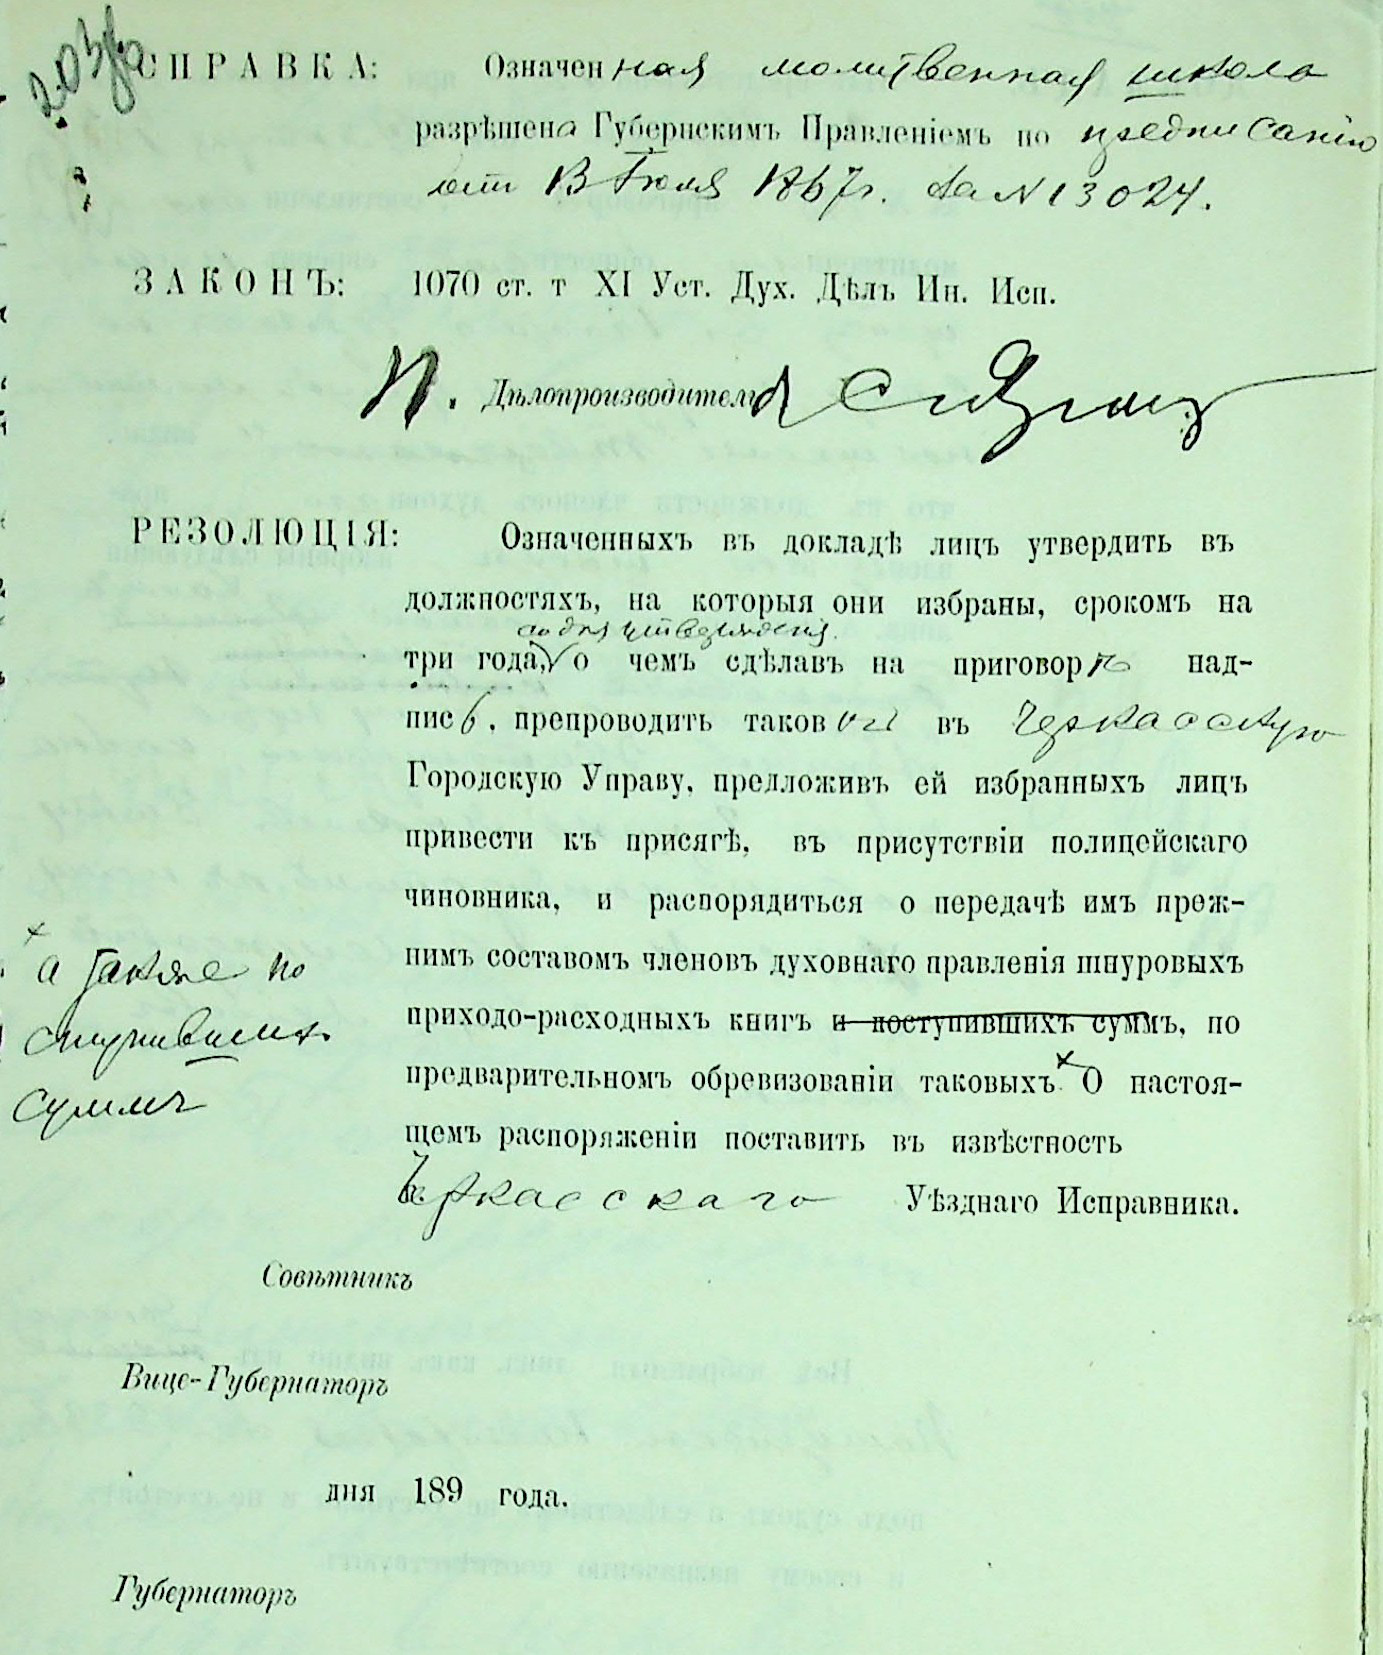 СПРАВКА: Означенная молитвенная школа
разрѣшена Губернскимъ Правленіемъ по предписанію
отъ 13 Іюля 1867г. за N 13024.
ЗАКОНЪ: 1070 ст. т XI Уст. Дух. Дѣлъ Ин. Исп.
И. Дѣлопроизводитель
РЕЗОЛЮЦІЯ: Означенныхъ въ докладѣ лицъ утвердить въ
должностяхъ, на которыя они избраны, срокомъ на
со дня утвержденія.
три года, о чемъ сдѣлавъ на приговорѣ над-
пись, препроводить таковой въ Черкасскую
Городскую Управу, предложивъ ей избранныхъ лицъ
привести къ присягѣ, въ присутствіи полицейскаго
чиновника, и распорядиться о передачѣ имъ преж-
нимъ составомъ членовъ духовнаго правленія шнуровыхъ
приходо-расходныхъ книгъ и поступившихъ суммъ, по
предварительномъ обревизованіи таковыхъ. × О настоя-
щемъ распоряженіи поставить въ извѣстность
Черкасскаго Уѣзднаго Исправника.
×
а также по
ступившихъ
суммъ
Совѣтникъ
Вице-Губернаторъ
дня 189 года.
Губернаторъ